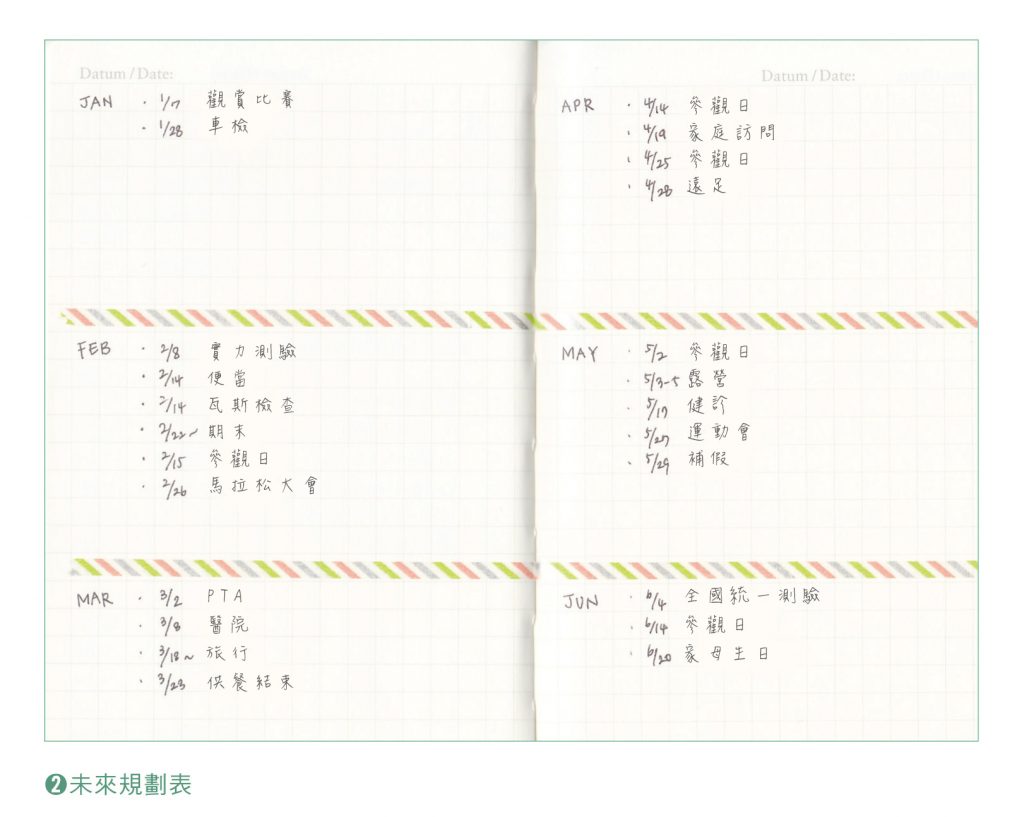 Datum / Date:
JAN
· 1/7 觀賞比賽
· 1/28 車檢
FEB
· 2/8 實力測驗
· 2/14 便當
· 2/14 瓦斯檢查
· 2/22~ 期末
· 2/15 參觀日
· 2/26 馬拉松大會
MAR
· 3/2 PTA
· 3/8 醫院
· 3/18~ 旅行
· 3/23 供餐結束
Datum / Date:
APR
· 4/14 參觀日
· 4/19 家庭訪問
· 4/25 參觀日
· 4/28 遠足
MAY
· 5/2 參觀日
· 5/3-5 露營
· 5/17 健診
· 5/27 運動會
· 5/29 補假
JUN
· 6/4 全國統一測驗
· 6/14 參觀日
· 6/20 家母生日
❷未來規劃表